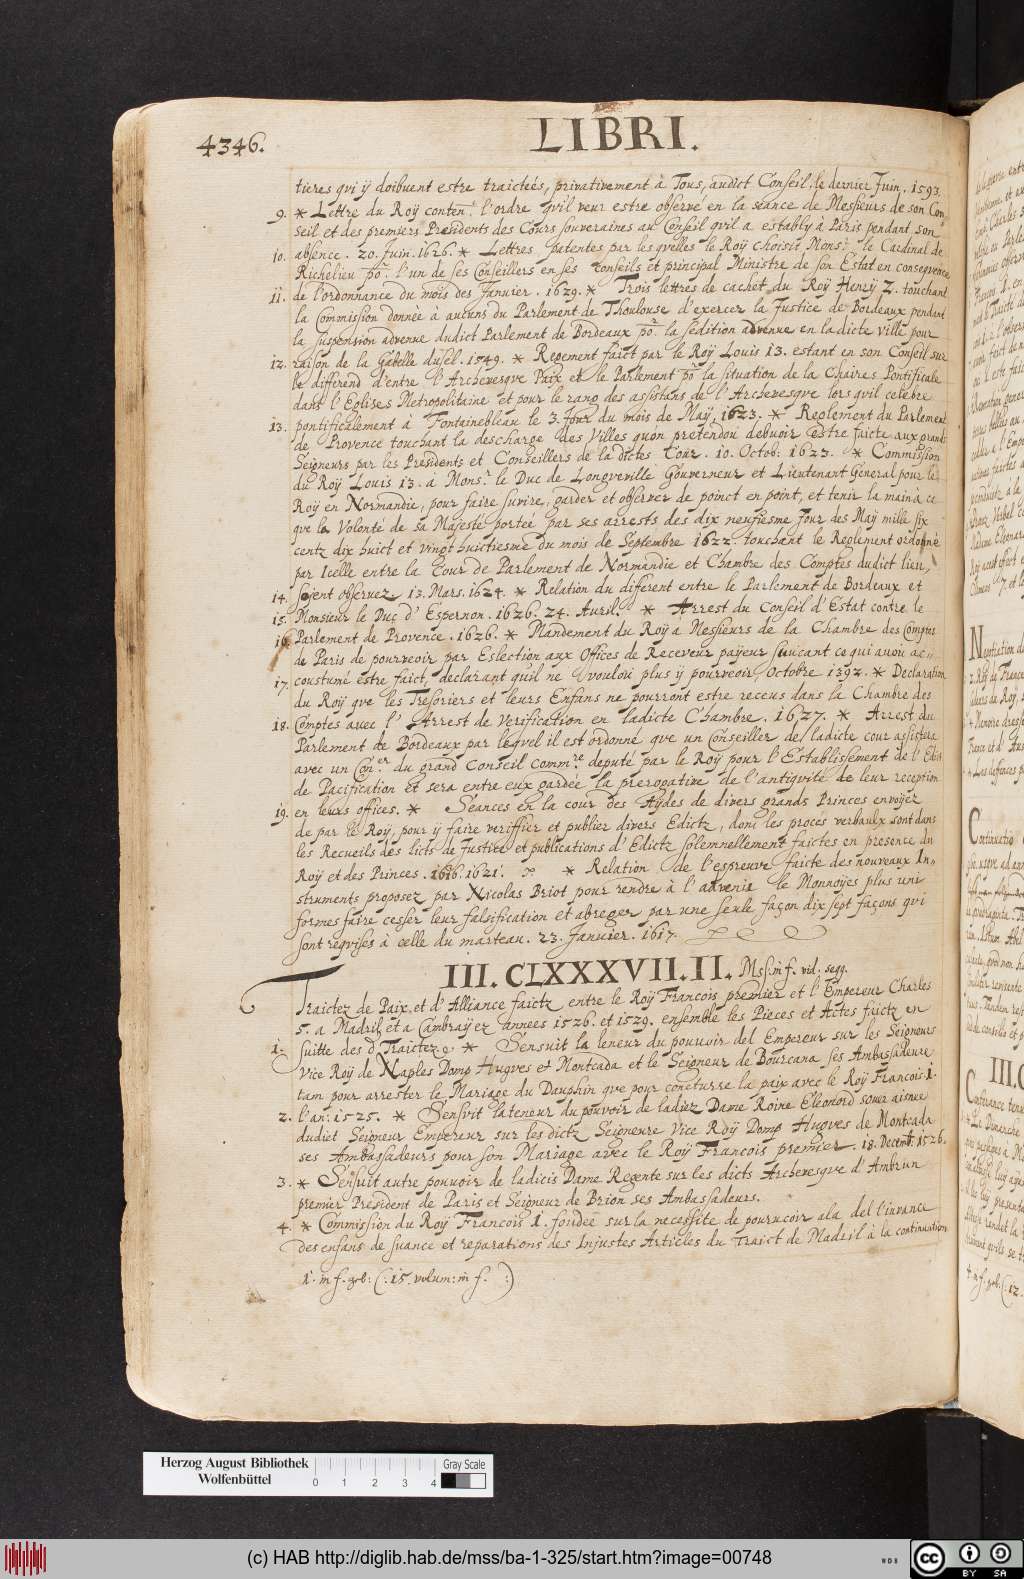 4346.
LIBRI.
tieres qvi ÿ doibuent estre traicteés, privativement à Tous, audict Conseil. le dernier Juin. 1593.
9. * Lettre du Roÿ conten.t l'ordre qvil veur estre observé en la séance de Messieurs de son Con-
seil et des premiers Præsidents des Cours souveraines au Conseil qvil a estably à Paris pendant son
10. absence. 20. Juin. 1626. * Lettres patentes par les qvelles le Roÿ choisit Mons.r le Cardinal de
Richelieu po. l'un de ses Conseillers en ses Conseils et principal Ministre de son Estat en conseqvence
11. de l'ordonnance du mois des Januier. 1629. * Trois lettres de cachet du Roÿ Henrÿ 2. touchant
la Commission donneé à aucuns du Parlement de Thoulouse d'exercer la Justice de Bordeaux pendant
la suspension advenue dudict Parlement de Bordeaux po. la sedition advenue en ladicte Ville pour
12. raison de la Gabelle dusel. 1549. * Regement faict par le Roÿ Louis 13. estant en son Conseil sur
le differend d'entre l'Archevesqve Paix et le Parlement po la situation de la Chaires Pontificale
dans l'Eglises Metropolitaine et pour le rang des assistans de l'Archevesqve lors qvil celebre
13. pontificalement à Fontainebleau le 3. Jour du mois de Maÿ, 1623. * Reglement du Parlement
de Provence touchant la descharge des Villes quón pretendoú debuoir estre faicte aux grands
Seigneurs par les Presidents et Conseillers de la dictes Cour. 10. Octob. 1623. * Commission
du Roÿ Louis 13. à Mons.r le Duc de Longveville Gouverneur et Lieutenant General pour le
Roÿ en Normandie, pour faire suvire, garder et observer de poinct en point, et tenir la main à ce
qve la Volonté de sa Majesté porteé par ses arrests des dix neufiesme Jour des Maÿ mille six
centz dix huict et vingt huictiesme du mois de Septembre 1622 touchant le Reglement ordonné
par Icelle entre la Cour de Parlement de Normandie et Chambre des Comptes dudict lieu,
14. soÿent observez 13. Mars. 1624. * Relation du different entre le Parlement de Bordeaux et
15. Monsieur le Duc d'Espernon. 1626. 24. Auril. * Arrest du Conseil d'Estat contre le
16. Parlement de Provence. 1626. * Mandement du Roÿ a Messieurs de la Chambre des Comptes
de Paris de pourveoir par Eslection aux Offices de Receveur payeur suivant ce qui avoit ac-
17. coustumé estre faict, declarant quil ne Vouloú plus ÿ pourveoir, Octobre 1392. * Declaration
du Roÿ qve les Tresoriers et leurs Enfans ne pourront estre receus dans la Chambre des
18. Comptes avec l'Arrest de Verification en ladicte Chambre. 1627. * Arrest du
Parlement de Bordeaux par leqvel il est ordonné qve un Conseiller de ladicte cour assistera
avec un Con.er du grand Conseil Comm.re deputé par le Roÿ pour l'Establissement de l'Edit
de Pacification et sera entre eux gardeé la prerogative de l'antiqvité de leur reception
19. en leurs offices. * Séances en la cour des Aÿdes de divers grands Princes envoÿez
de par le Roÿ, pour ÿ faire veriffier et publier divers Edictz, dont les proces verbaulx sont dans
les Recueils des licts de Justice et publications d'Edictz solemnellement faictes en presence du
Roÿ et des Princes. 1616. 1621. * Relation de l'espreuve faicte des nouveaux In-
struments proposez par Nicolas Briot pour rendre à l'advenir le Monnoÿes plus uni
formes faire cesser leur falsification et abreger par une seule façon dix sept façons qvi
sont reqvises à celle du marteau. 23. Januier. 1617.
III. CLXXXVII. II. Mss. in f. vid. seqq.
Traictez de Paix et d'Alliance faictz entre le Roÿ François premier et l'Empereur Charles
5. a Madril et a Cambraÿ ez annees 1526. et 1529. ensemble les Pieces et Actes faictz en
1. suitte des d. Traictez. * Sensuit la teneur du pouuoir del Empereur sur les Seigneurs
Vice Roÿ de Naples Domp Hugves de Montcada et le Seigneur de Bourcana ses Ambassadeurs
tam pour arrester le Mariage du Dauphin qve pour concturre la paix avec le Roÿ Francois 1.
2. l'an: 1525. * Sensvit lateneur du pouvoir de ladiez Dame Roine Eleonord soeur aisneé
dudict Seigneur Empereur sur les dictz Seigneure Vice Roÿ Domp Hugves de Montcada
ses Ambassadeurs pour son Mariage avec le Roÿ Francois premier. 18. Decemb. 1526.
3. * Sensuit autre pouuoir de ladicis Dame Regente sur les dicts Archevesqve d'Ambrun
premier President de Paris et Seigneur de Brion ses Ambassadeurs.
4. * Commission du Roÿ Francois 1. fondeé sur la necessite de pouruoir a la del l'iurance
des enfans de suance et reparations des Injustes Articles du Traict de Madril à la continuation
1. in f. geb. (: 15. volum: in f. :)
Herzog August Bibliothek
Wolfenbüttel
0 1 2 3 4
Gray Scale
(c) HAB http://diglib.hab.de/mss/ba-1-325/start.htm?image=00748
WDB
cc BY SA